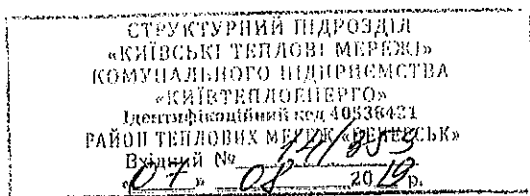 СТРУКТУРНИЙ ПІДРОЗДІЛ
«КИЇВСЬКІ ТЕПЛОВІ МЕРЕЖІ»
КОМУНАЛЬНОГО ПІДПРИЄМСТВА
«КИЇВТЕПЛОЕНЕРГО»
Ідентифікаційний код 40538421
РАЙОН ТЕПЛОВИХ МЕРЕЖ «ПЕЧЕРСЬК»
Вхідний № 14/
«07» 08 2019 р.